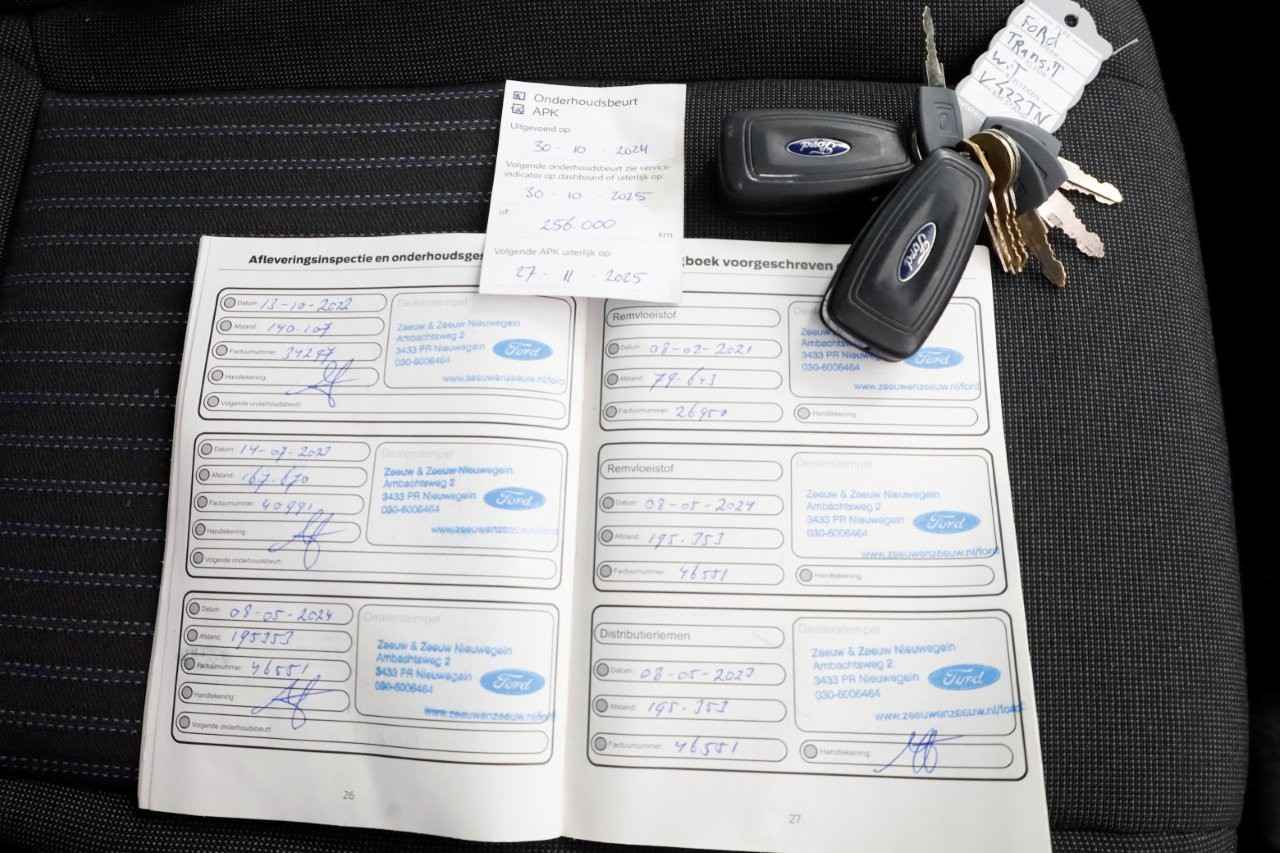 Onderhoudsbeurt
APK
Uitgevoerd op:
30 - 10 - 2024
Volgende onderhoudsbeurt zie service-
indicator op dashboard of uiterlijk op:
30 - 10 2025
of
256.000 km
Volgende APK uiterlijk op:
27 - 11 - 2025
Ford
Transit
Wit
Ford
Ford
Afleveringsinspectie en onderhoudsges
Datum: 13-10-2022
Afstand: 140.107
Factuurnummer:
Handtekening:
Volgende onderhoudsbeurt:
Dealerstempel
Zeeuw & Zeeuw Nieuwegein
Ambachtsweg 2
3433 PR Nieuwegein
030-6006464
Ford
www.zeeuwenzeeuw.nl/ford
Datum: 14-07-2023
Afstand: 167.670
Factuurnummer: 40991
Handtekening:
Volgende onderhoudsbeurt:
Dealerstempel
Zeeuw & Zeeuw Nieuwegein
Ambachtsweg 2
3433 PR Nieuwegein
030-6006464
Ford
www.zeeuwenzeeuw.nl/ford
Datum: 08-05-2024
Afstand: 195353
Factuurnummer: 46551
Handtekening:
Volgende onderhoudsbeurt:
Dealerstempel
Zeeuw & Zeeuw Nieuwegein
Ambachtsweg 2
3433 PR Nieuwegein
030-6006464
Ford
www.zeeuwenzeeuw.nl/ford
26
gboek voorgeschreven
Remvloeistof
Datum: 08-02-2021
Afstand: 79.643
Factuurnummer: 26950
Zeeuw & Zeeuw
Ambachtsweg 2
3433 PR Nieuwegein
030-6006464
Ford
www.zeeuwenzeeuw.nl/ford
Handtekening:
Remvloeistof
Datum: 08-05-2024
Afstand: 195.353
Factuurnummer: 46551
Dealerstempel
Zeeuw & Zeeuw Nieuwegein
Ambachtsweg 2
3433 PR Nieuwegein
030-6006464
Ford
www.zeeuwenzeeuw.nl/ford
Handtekening:
Distributieriemen
Datum: 08-05-2023
Afstand: 195.353
Factuurnummer: 46551
Dealerstempel
Zeeuw & Zeeuw Nieuwegein
Ambachtsweg 2
3433 PR Nieuwegein
030-6006464
Ford
www.zeeuwenzeeuw.nl/ford
Handtekening:
27